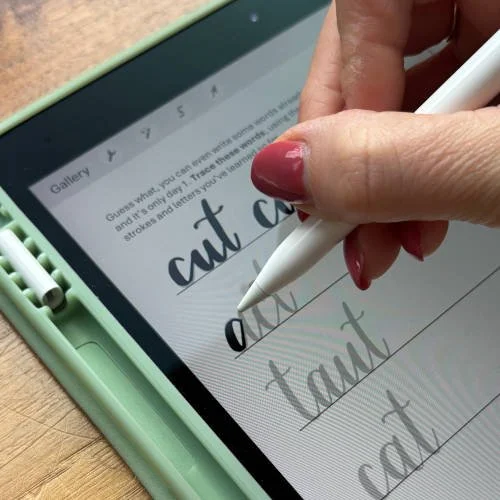 Gallery
Guess what, you can even write some words
and it's only day 1. Trace these words, using
strokes and letters you've learned so
cut
ait
taut
cat